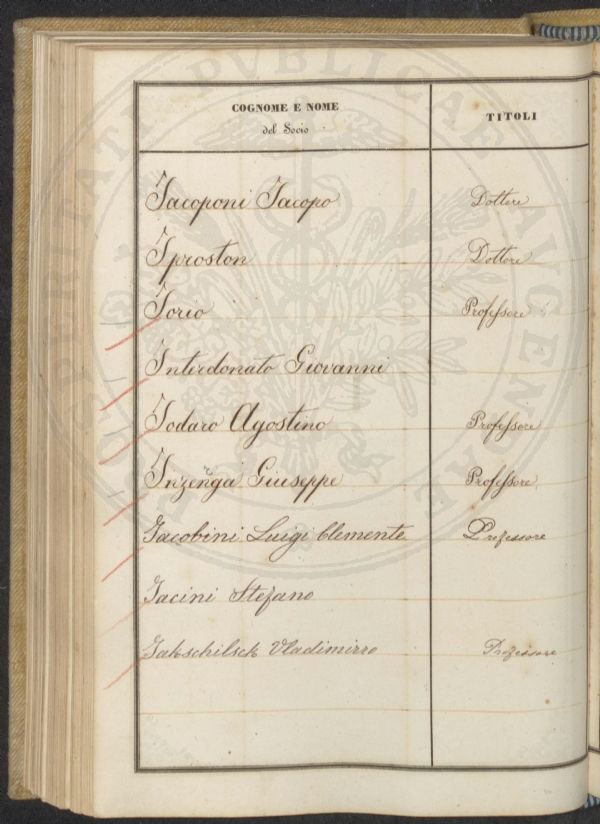 COGNOME E NOME
del Socio
TITOLI
Jacoponi Jacopo Dottore
Iproston Dottore
Iorio Professore
Interdonato Giovanni
Jodaro Agostino Professore
Inzenga Giuseppe Professore
Jacobini Luigi Clemente Professore
Jacini Stefano
Jakschilsck Vladimirro Professore